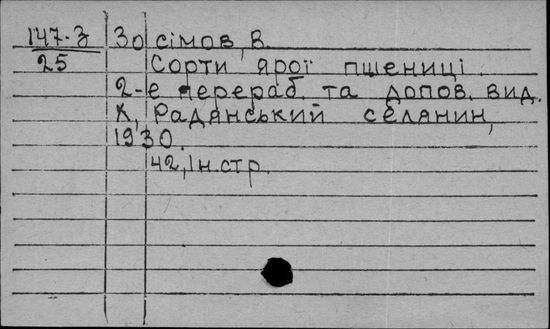 147-З Зосімов, В.
25 Сорти ярої пшениці.
2-е перераб. та допов. вид.
Х, Радянський селянин,
1930.
42, Ін.стр.